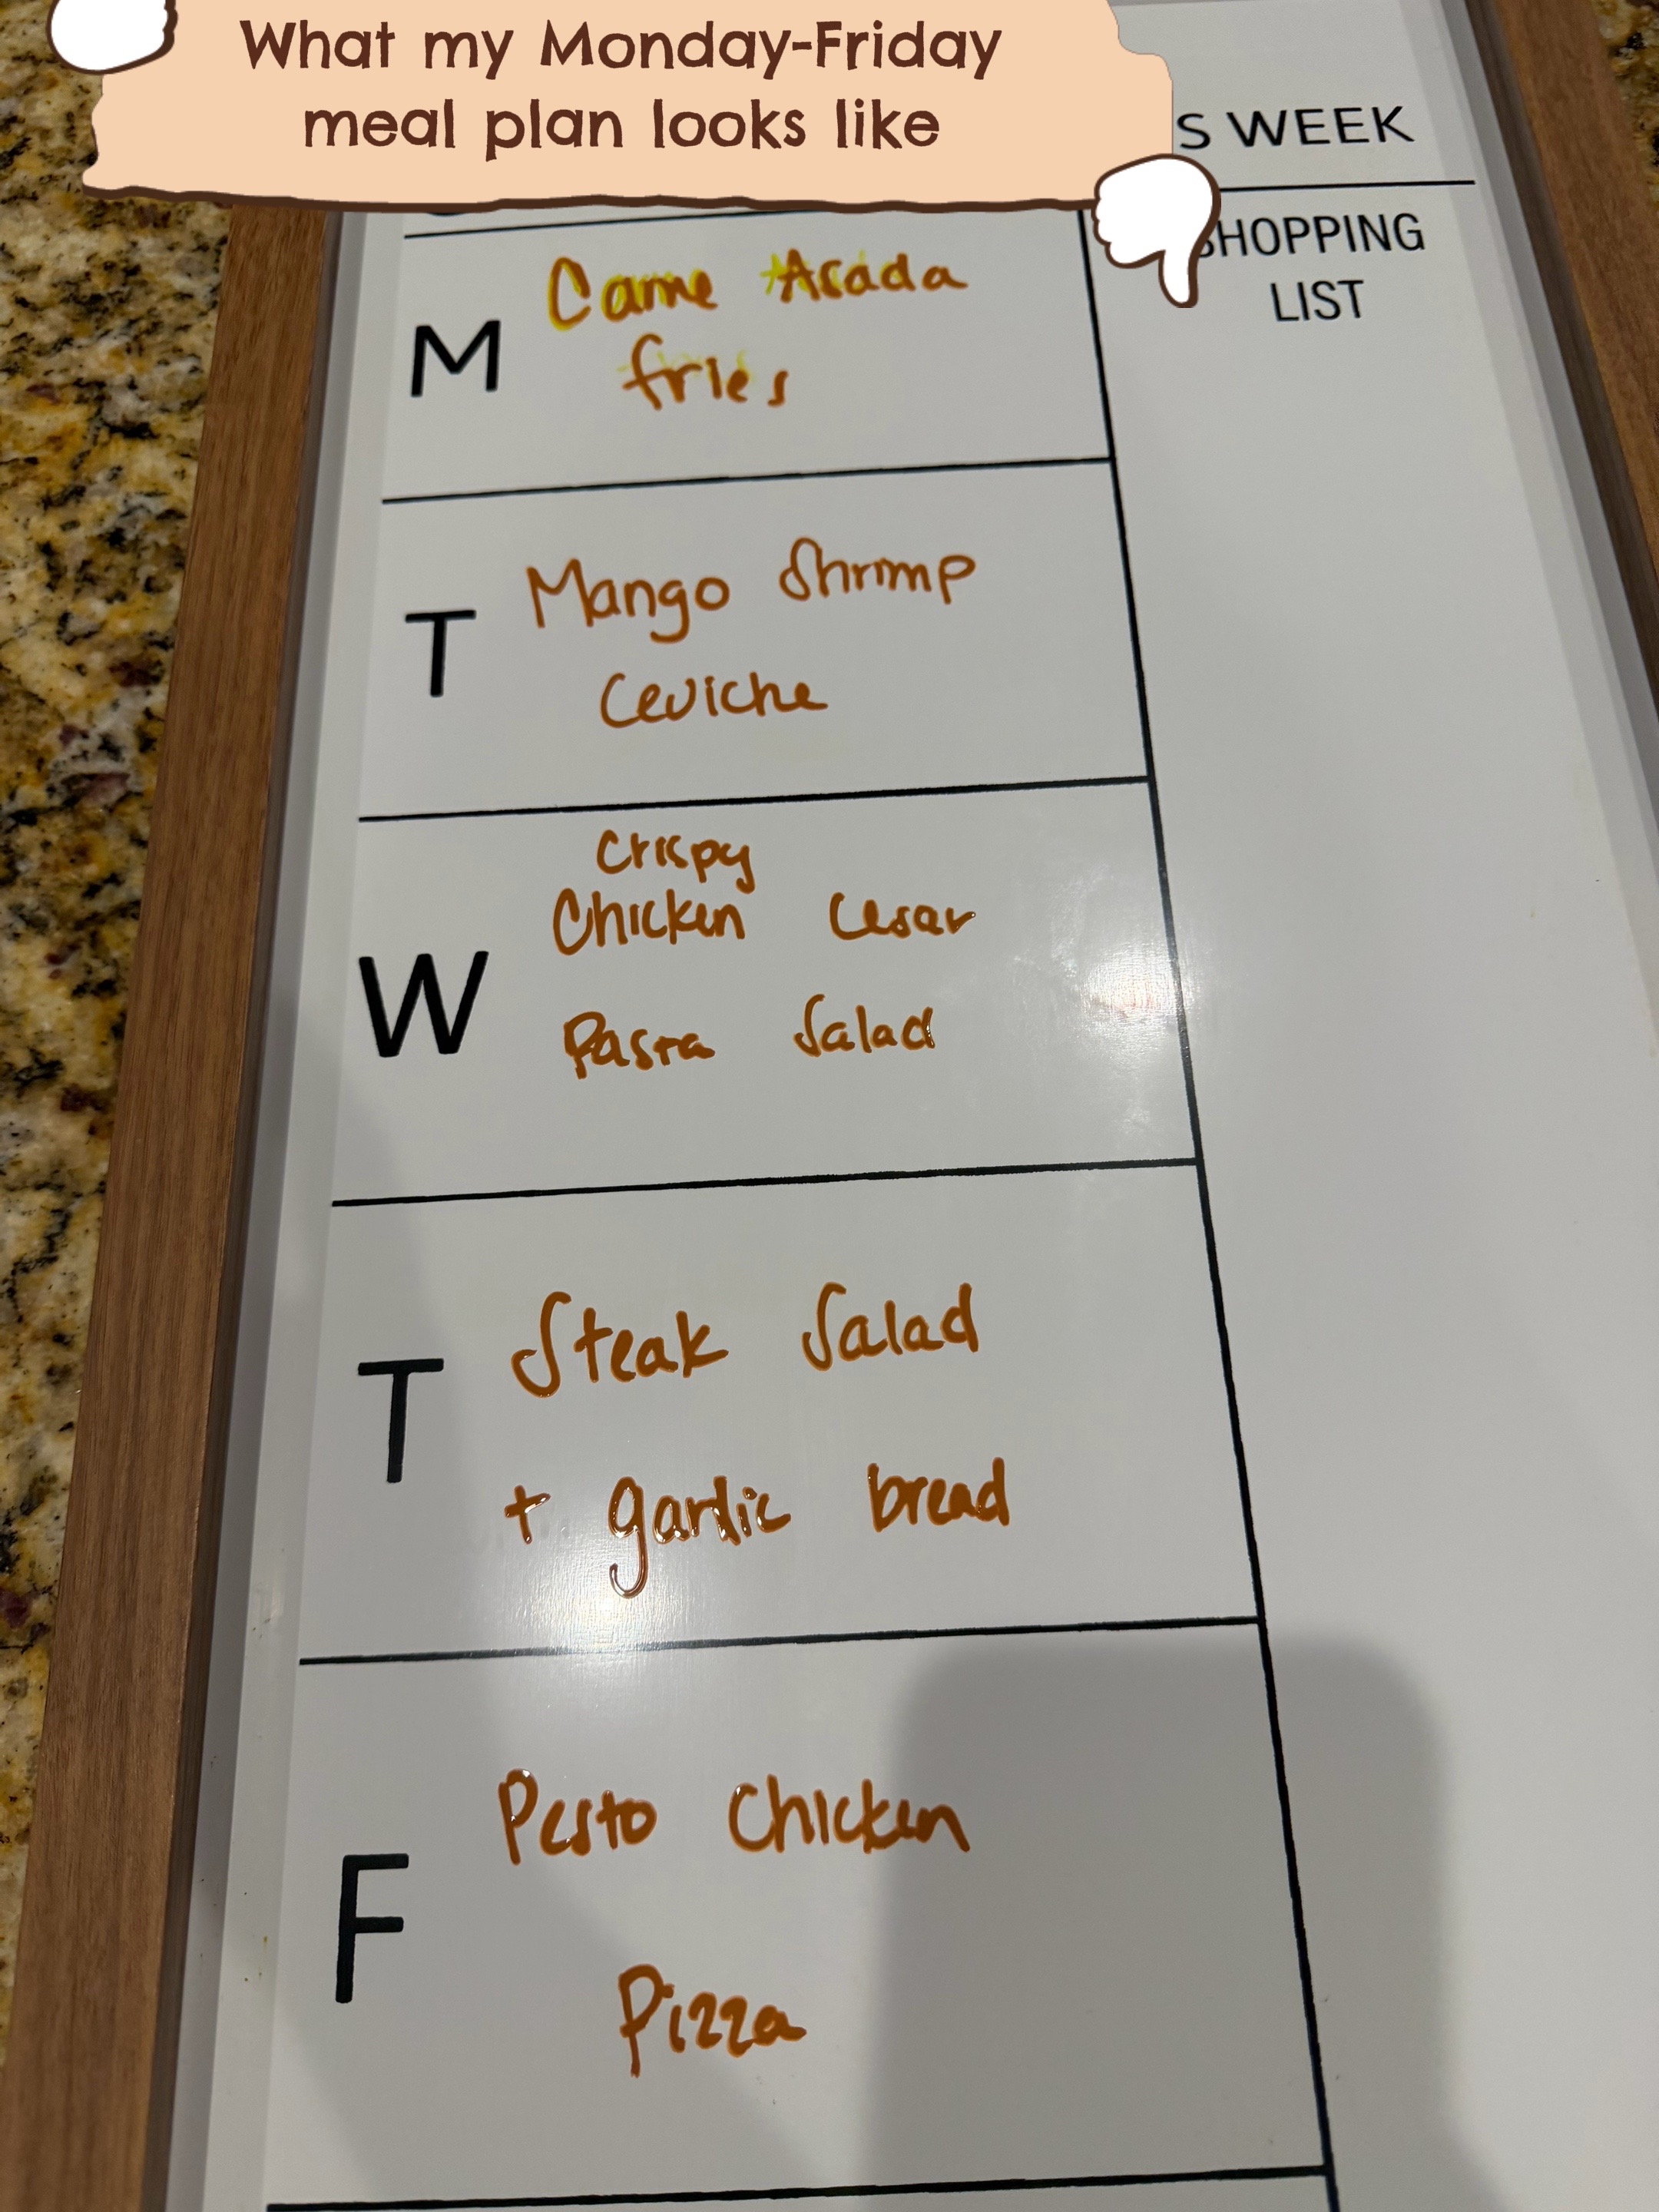 What my Monday-Friday
meal plan looks like
S WEEK
SHOPPING
LIST
M
Carne Asada
fries
T
Mango Shrimp
Ceviche
W
Crispy
Chicken Cesar
Pasta Salad
T
Steak Salad
+ garlic bread
F
Pesto Chicken
Pizza